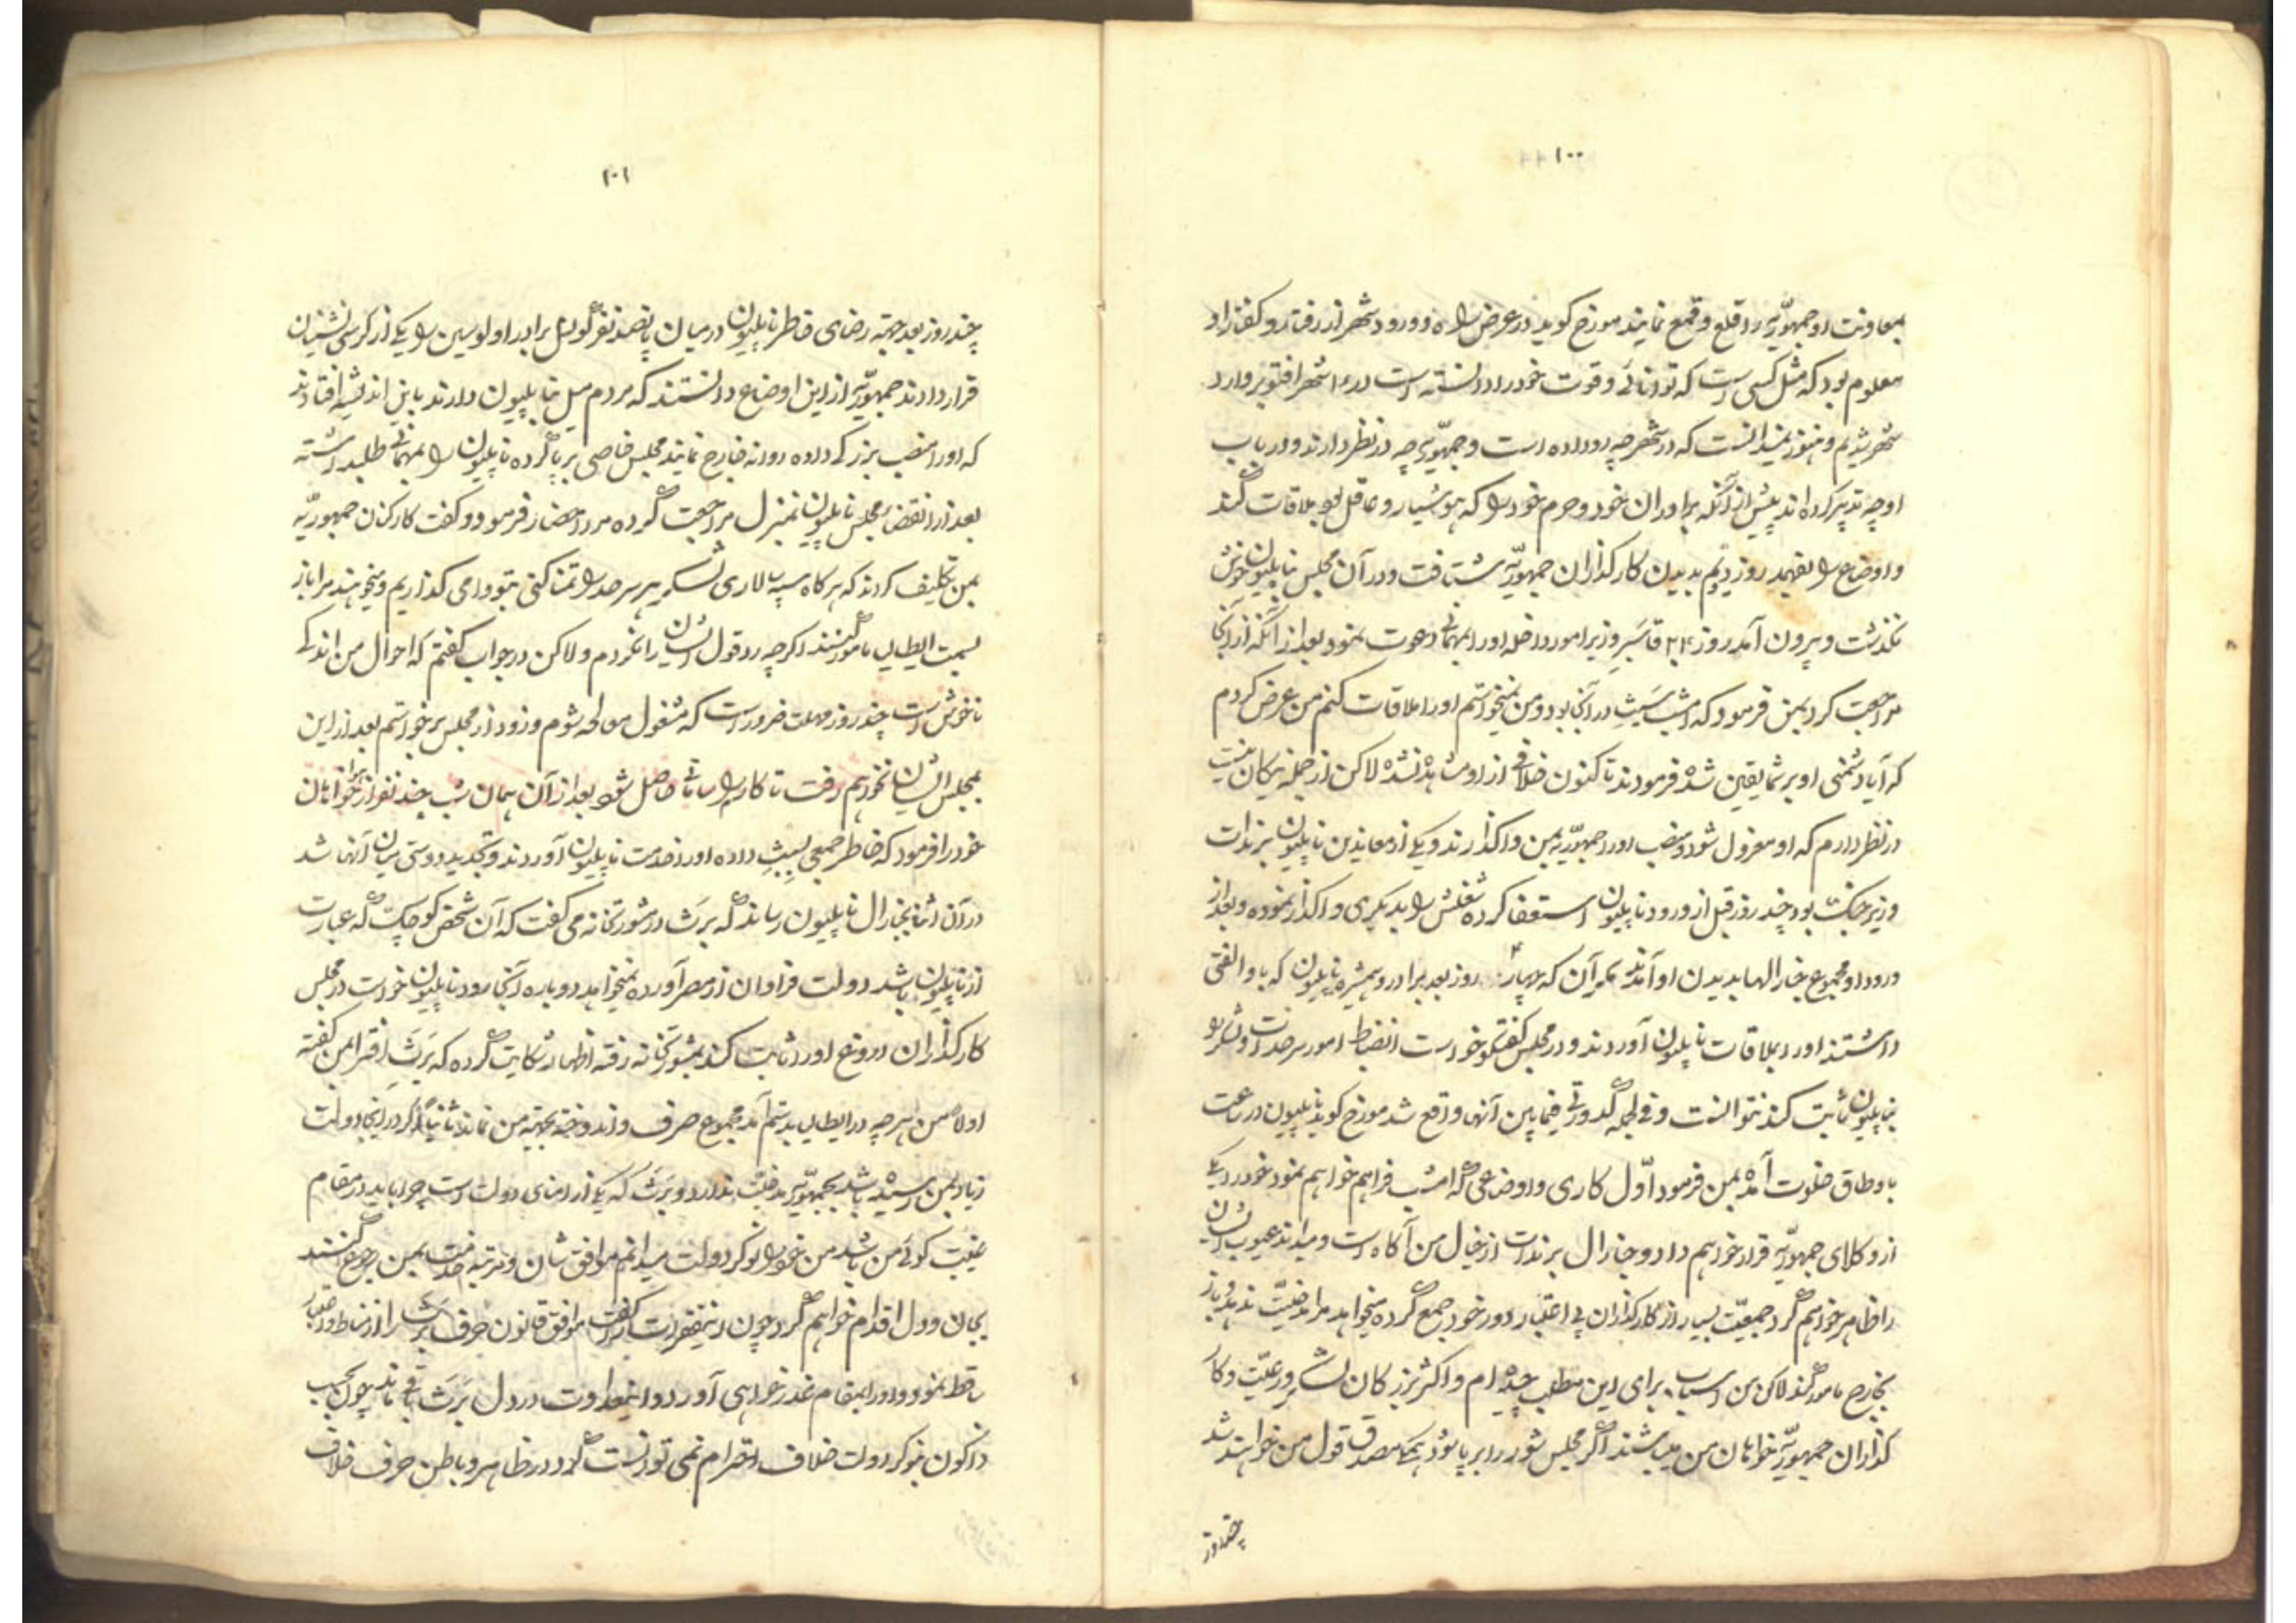 ۱۰۰
بمعاونت او جمهوریّه را قلع و قمع نمایند مورخ کوید در عرض راه و ورود شهر از رفتار و کفتار او
معلوم بود که مثل کسی است که توانائی و قوت خود را دانسته است در ۱۶ شهر افتوبر وارد
شهر شدیم و هنوز نمیدانست که در شهر چه رو داده است و جمهوریّه چه در نظر دارند و در باب
او چه تدبیر کرده اند پیش از آنکه برادران خود و حرم خود را که هوشیار و عاقل بود ملاقات کند
و اوضاع را بفهمد روز دویم بدیدن کارکذاران جمهوریّه شتافت و در آن مجلس بناپلیون خوش
نکذشت و بیرون آمد روز ۲۴ قاسیر وزیر امور داخله او را بمهمانی دعوت نمود بعد از آنکه از آنجا
مراجعت کرد بمن فرمود که امشب سَیِث در آنجا بود و من نمیخواستم او را ملاقات کنم من عرض کردم
که آیا دشمنی او بر شما یقین شده فرمودند تا کنون خلافی از او مشاهده نشده لاکن از جمله نیکان من نیست
در نظر دارم که او معزول شود و منصب او را جمهوریّه بمن واکذارند و یکی از معاندین ناپلیون برندات
وزیر جنک بود چند روز قبل از ورود ناپلیون استعفا کرده شغلش را بدیکری واکذار نموده و بعد از
ورود او مجموع جنارالها بدیدن او آمدند مکر آن که بیمار روز بعد برادر و همشیره ناپلیون که با او الفتی
داشتند او را بملاقات ناپلیون آوردند و در مجلس کفتکو خواست انضباط امور سرحدات و لشکر را
بناپلیون ثابت کند نتوانست و فی الجمله کدورتی فیما بین آنها واقع شد مورخ کوید ناپلیون در ساعت
باوطاق خلوت آمده بمن فرمود اوّل کاری و اوضاعی که امشب فراهم خواهم نمود خود را یکی
از وکلای جمهوریّه قرار خواهم داد و جنارال برندات از خیال من آکاه است و میداند عیوب ایشان
را ظاهر خواهم کرد جمعیّت بسیار از کارکذاران بی اعتبار دور خود جمع کرده میخواهد مرا مدخلیّت ندهد و باز
بخارج مامور کند لاکن من اسباب برای این مطلب چیده ام و اکثر بزرکان لشکر و رعیّت و کار
کذاران جمهوریّه خواهان من میباشند اکر مجلس شورا برپا شود همکی مصدق قول من خواهند شد
چند روز
۱۰۱
چند روز بعد جهته رضای خاطر ناپلیون در میان پانصد نفر کونسل برادر او لوسین را یکی از کرسی نشینان
قرار دادند جمهوریّه از این اوضاع دانستند که مردم میل بناپلیون دارند باین اندیشه افتادند
که او را منصب بزرکی داده روانه خارج نمایند مجلس خاصی برپا کرده ناپلیون را بمهمانی طلب داشته
بعد از انقضاء مجلس ناپلیون بمنزل مراجعت کرده مرا احضار فرمود و کفت کارکنان جمهوریّه
بمن تکلیف کردند که هر کاه سپه سالاری لشکر هر سرحد را تمنا کنی بتو وا می کذاریم و میخواهند مرا باز
بسمت ایطالیا مامور کنند اکرچه رد قول ایشان را نکردم و لاکن در جواب کفتم که احوال من اندکی
ناخوش است چند روز مهلت ضرور است که مشغول معالجه شوم و زود از مجلس برخواستم بعد از این
بمجلس ایشان نخواهم رفت تا کار را ساتی حاصل شود بعد از آن همان شب چند نفر از خواهان
خود را فرمود که خاطر جمعی بسیث داده او را خدمت ناپلیون آوردند و تجدید دوستی میان آنها شد
در آن اثنا بجنارال ناپلیون رساندند که برَث در مشورتخانه می کفت که آن شخص کوچک که عبارت
از ناپلیون باشد دولت فراوان از مصر آورده نمیخواهد دوباره آنجا رود ناپلیون خواست در مجلس
کارکذاران دروغ او را ثابت کند بمشورتخانه رفته اظهار شکایت کرده که برَث افترا بمن کفته
اولا من هر چه در ایطالیا بدستم آمد مجموع صرف و اندوخته بجهته من نماند ثانیاً اکر در آنجا دولت
زیاد بمن رسیده باشد بجمهوریّه مدخلیّت ندارد و برَث که یکی از امنای دولت است چرا باید در مقام
غیبت کوئی من باشد من خود را نوکر دولت میدانم موافق شان و مرتبه خدمت بمن رجوع کنند
بجان و دل اقدام خواهم کرد چون این تقریرات را کفت موافق قانون حرف برَث را از نشاط و اعتبار
ساقط نمود و او را بمقام عذرخواهی آورد و این عداوت در دل برَث باقی ماند چون بحسب
داکون نوکر دولت خلاف احترام نمی توانست کرد در ظاهر و باطن حرف خلاف